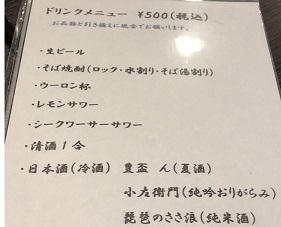 ドリンクメニュー ¥500(税込)
お品物と引き換えに現金でお願いします。
・生ビール
・そば焼酎(ロック・水割り・そば湯割り)
・ウーロン杯
・レモンサワー
・シークワーサーサワー
・清酒1合
・日本酒(冷酒) 豊盃 ん(夏酒)
小左衛門(純吟おりがらみ)
琵琶のささ浪(純米酒)